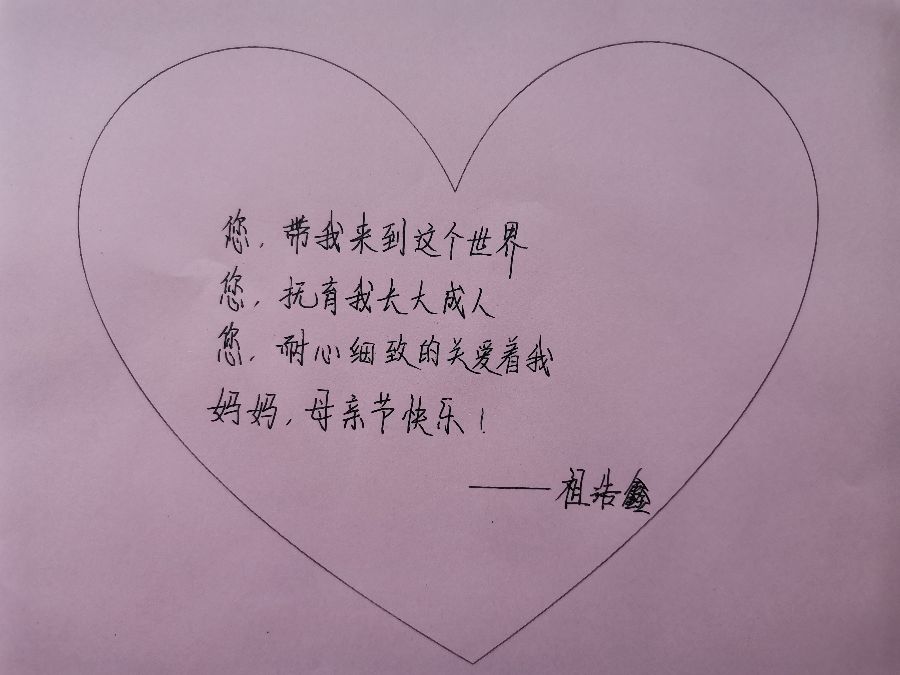 您，带我来到这个世界
您，抚育我长大成人
您，耐心细致的关爱着我
妈妈，母亲节快乐！
——祖浩鑫